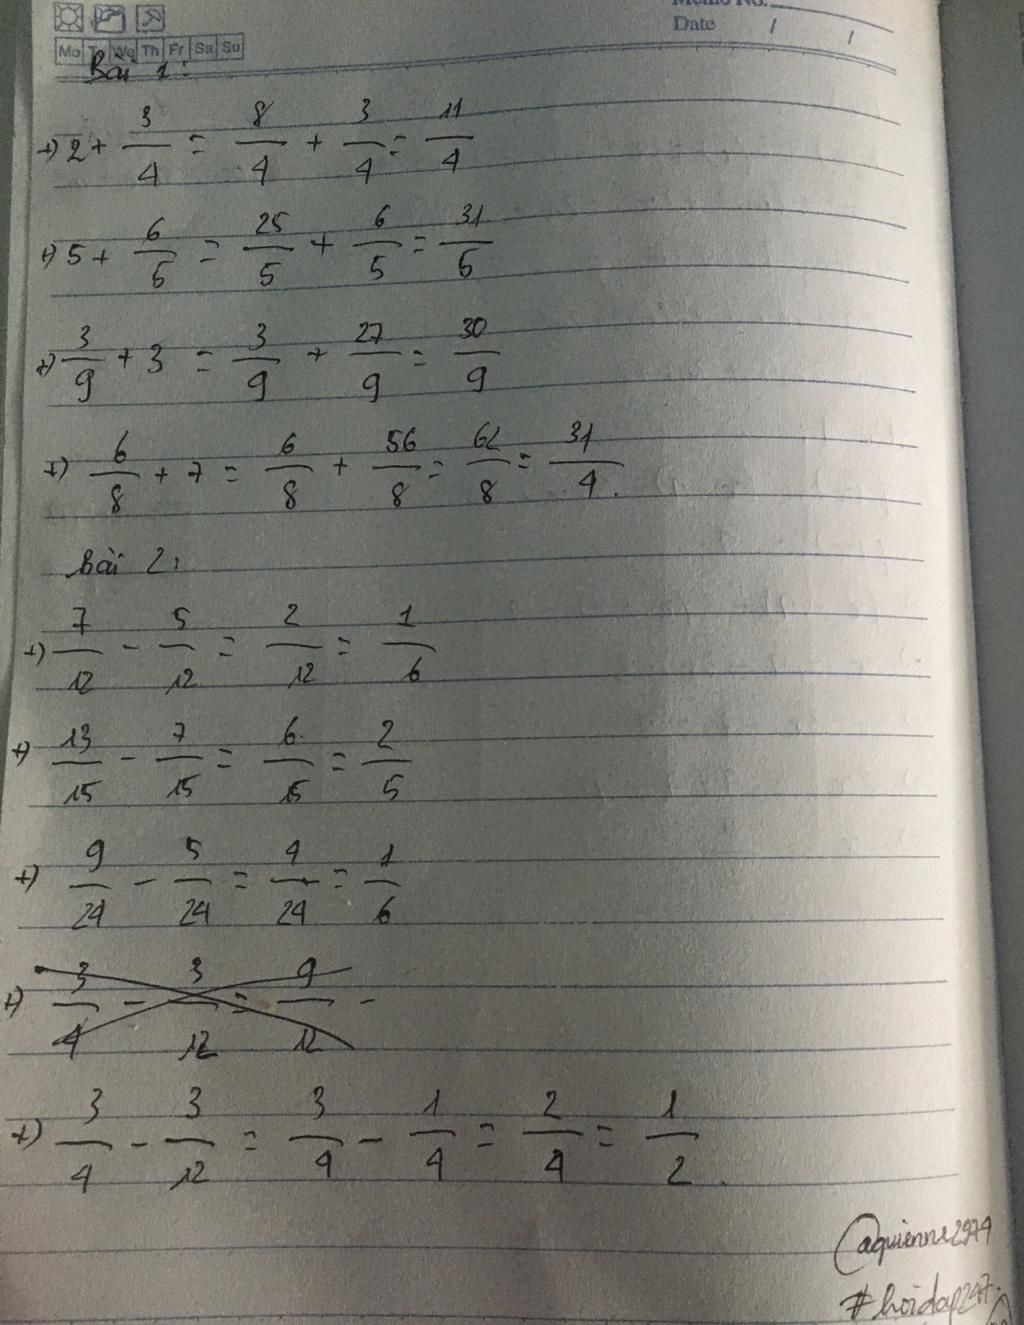 Memo No.
Date / /
Mo Tu We Th Fr Sa Su
Bài 1:
+) 2 + 3/4 = 8/4 + 3/4 = 11/4
+) 5 + 6/5 = 25/5 + 6/5 = 31/5
+) 3/9 + 3 = 3/9 + 27/9 = 30/9
+) 6/8 + 7 = 6/8 + 56/8 = 62/8 = 31/4.
Bài 2:
+) 7/12 - 5/12 = 2/12 = 1/6
+) 13/15 - 7/15 = 6/15 = 2/5
+) 9/24 - 5/24 = 4/24 = 1/6
+) 3/4 - 3/12 = 9/12 -
+) 3/4 - 3/12 = 3/4 - 1/4 = 2/4 = 1/2.
@aquienne2974
#hoidap247.